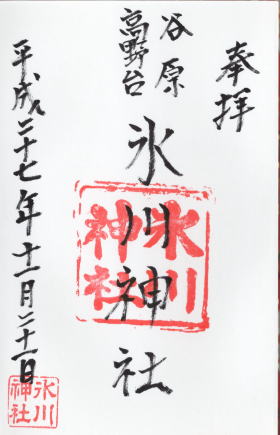 奉拝
谷原
高野台
氷川神社
氷川
神社
平成二十七年十一月二十一日
氷川
神社